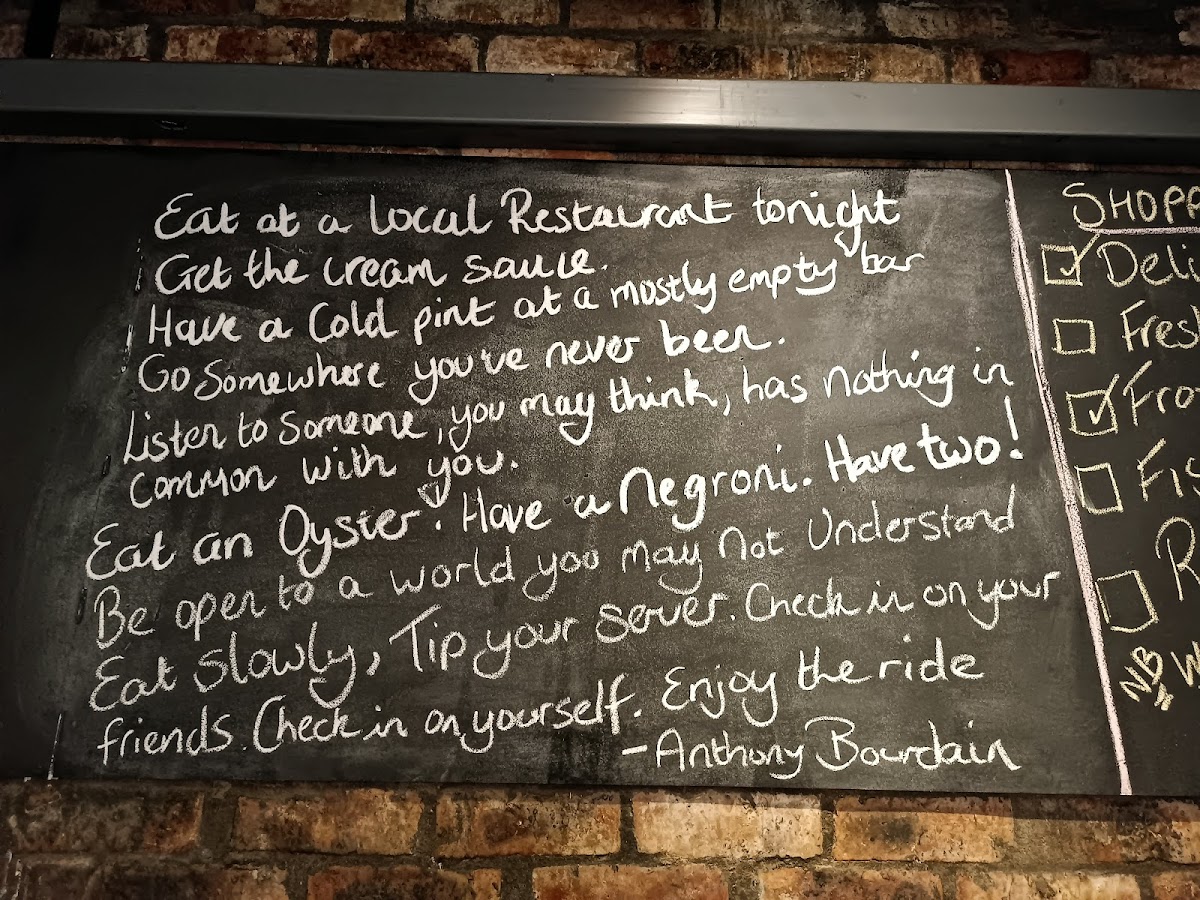 Eat at a local Restaurant tonight
Get the cream sauce.
Have a Cold pint at a mostly empty bar
Go Somewhere you've never been.
Listen to Someone, you may think, has nothing in
common with you.
Eat an Oyster. Have a Negroni. Have two!
Be open to a world you may Not Understand
Eat slowly, Tip your server. Check in on your
friends. Check in on yourself. Enjoy the ride
- Anthony Bourdain
SHOPP
Deli
Fres
Fro
Fis
R
NB W